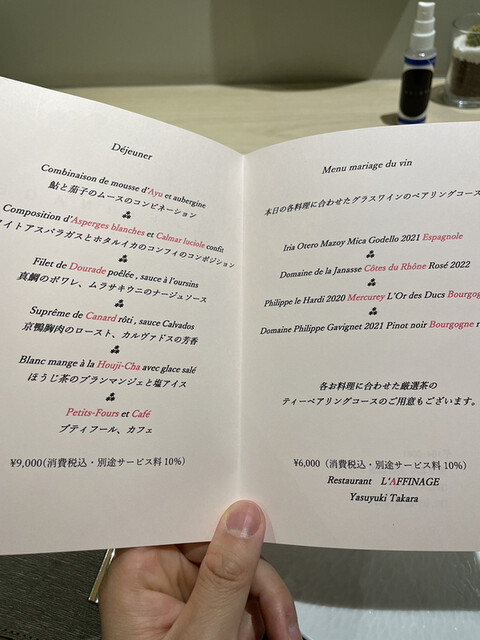 Déjeuner
Combinaison de mousse d'Ayu et aubergine
鮎と茄子のムースのコンビネーション
Composition d'Asperges blanches et Calmar luciole confit
イトアスパラガスとホタルイカのコンフィのコンポジション
Filet de Dourade poêlée , sauce à l'oursins
真鯛のポワレ、ムラサキウニのナージュソース
Suprême de Canard rôti , sauce Calvados
京鴨胸肉のロースト、カルヴァドスの芳香
Blanc mange à la Houji-Cha avec glace salé
ほうじ茶のブランマンジェと塩アイス
Petits-Fours et Café
プティフール、カフェ
¥9,000(消費税込・別途サービス料 10%)
Menu mariage du vin
本日の各料理に合わせたグラスワインのペアリングコース
Iria Otero Mazoy Mica Godello 2021 Espagnole
Domaine de la Janasse Côtes du Rhône Rosé 2022
Philippe le Hardi 2020 Mercurey L'Or des Ducs Bourgog
Domaine Philippe Gavignet 2021 Pinot noir Bourgogne r
各お料理に合わせた厳選茶の
ティーペアリングコースのご用意もございます。
¥6,000（消費税込・別途サービス料 10%）
Restaurant L'AFFINAGE
Yasuyuki Takara